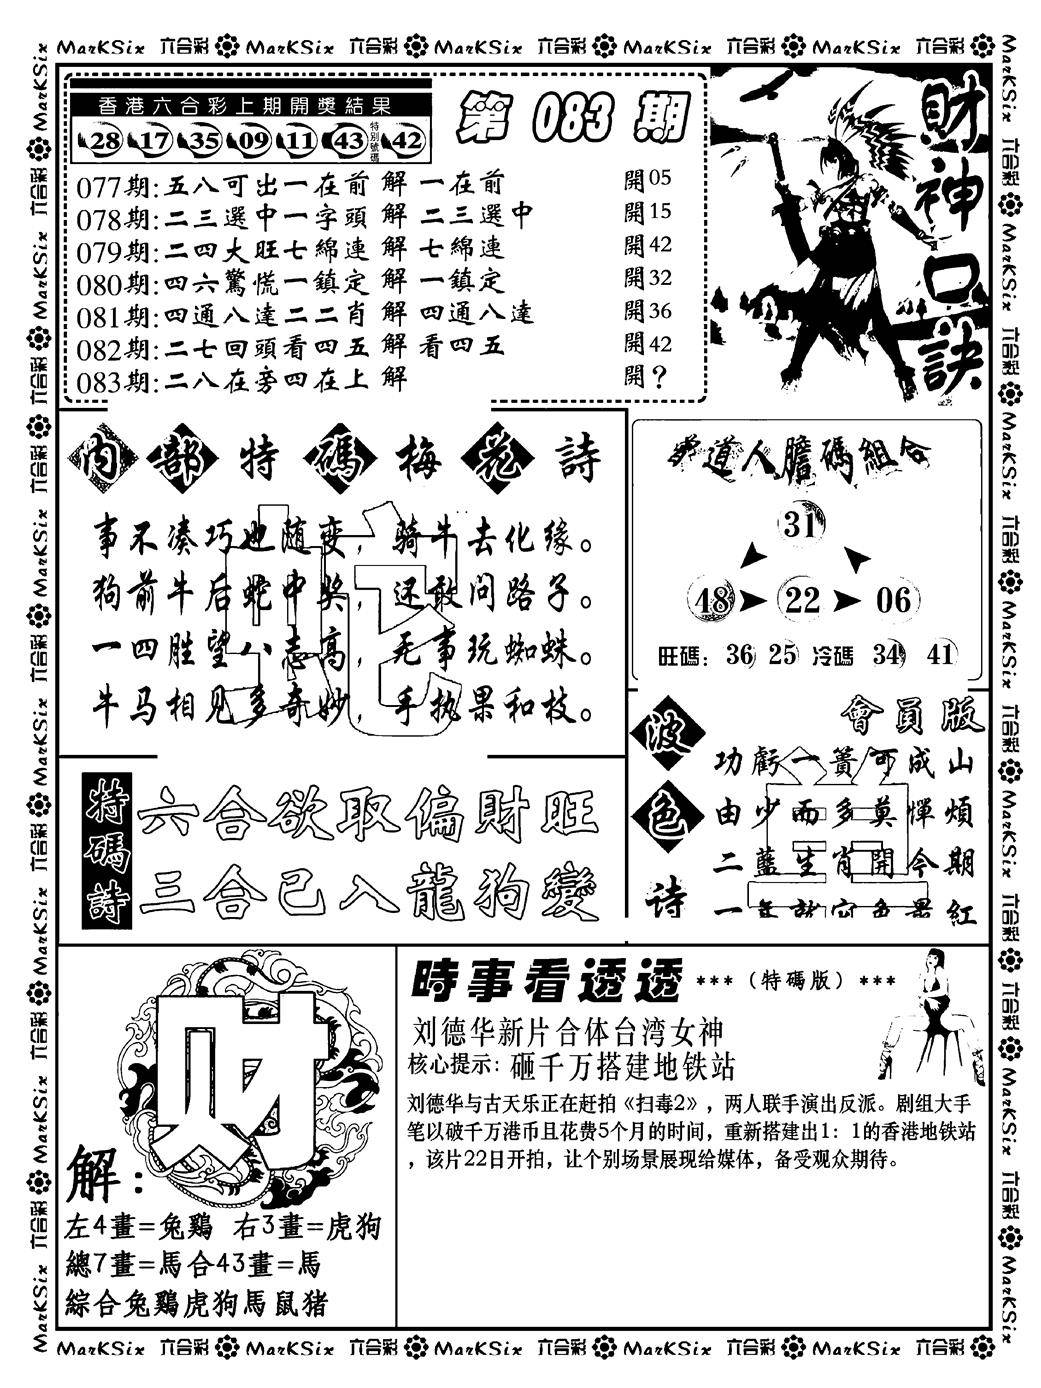 MarKSix 六合彩 MarKSix 六合彩 MarKSix 六合彩 MarKSix 六合彩 MarKSix 六合彩
香港六合彩上期開獎結果
28 17 35 09 11 43 特別號碼 42
第 083 期
財神口訣
077期:五八可出一在前 解 一在前 開05
078期:二三選中一字頭 解 二三選中 開15
079期:二四大旺七綿連 解 七綿連 開42
080期:四六驚慌一鎮定 解 一鎮定 開32
081期:四通八達二二肖 解 四通八達 開36
082期:二七回頭看四五 解 看四五 開42
083期:二八在旁四在上 解 開?
內部特碼梅花詩
蛇
事不凑巧也随变，骑牛去化缘。
狗前牛后蛇中奖，还敢问路子。
一四胜望八志高，无事玩蜘蛛。
牛马相见多奇妙，手执果和枝。
道人膽碼組合
31
48 22 06
旺碼: 36 25 冷碼 34 41
特碼詩
六合欲取偏財旺
三合已入龍狗變
波色诗
會員版
功虧一簣可成山
由少而多莫憚煩
二藍生肖開今期
一年就宜色果紅
財
解:
左4畫=兔鷄 右3畫=虎狗
總7畫=馬合43畫=馬
綜合兔鷄虎狗馬鼠猪
時事看透透 ***（特碼版）***
刘德华新片合体台湾女神
核心提示: 砸千万搭建地铁站
刘德华与古天乐正在赶拍《扫毒2》，两人联手演出反派。剧组大手
笔以破千万港币且花费5个月的时间，重新搭建出1: 1的香港地铁站
，该片22日开拍，让个别场景展现给媒体，备受观众期待。
MarKSix 六合彩 MarKSix 六合彩 MarKSix 六合彩 MarKSix 六合彩 MarKSix 六合彩